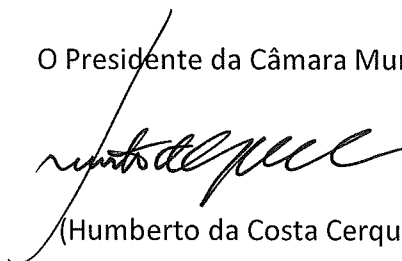 O Presidente da Câmara Mun
(Humberto da Costa Cerqu